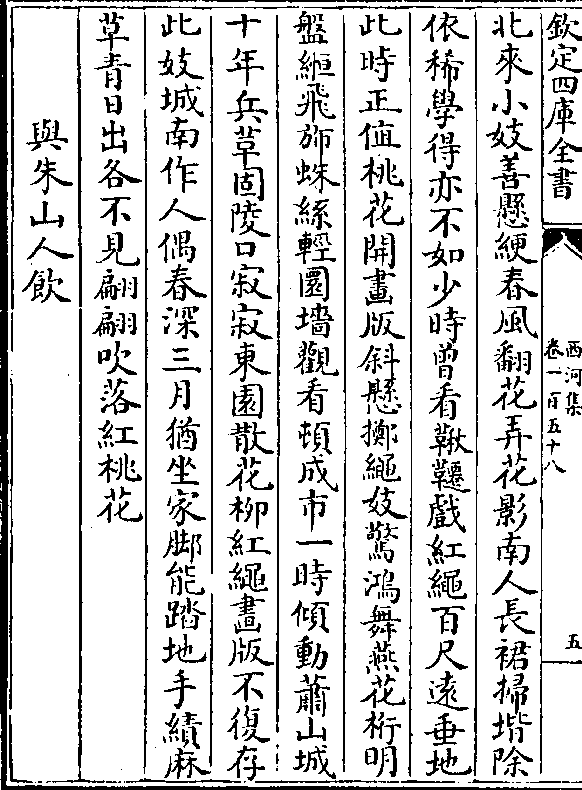 欽定四庫全書
西河集
卷一百五十八
五
北來小妓善懸綆春風翻花弄花影南人長裙掃堦除
依稀學得亦不如少時曾看鞦韆戲紅繩百尺遠垂地
此時正值桃花開畫版斜懸擲繩妓驚鴻舞燕花桁明
盤縆飛斾蛛絲輕圜墻觀看頓成市一時傾動蕭山城
十年兵草固陵口寂寂東園散花柳紅繩畫版不復存
此妓城南作人偶春深三月猶坐家脚能踏地手績麻
草青日出各不見翩翩吹落紅桃花
與朱山人飲